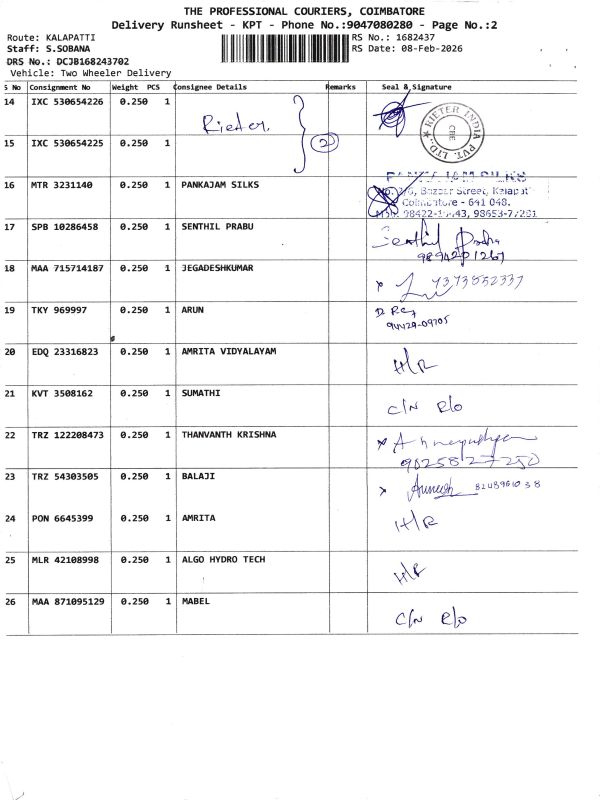 THE PROFESSIONAL COURIERS, COIMBATORE
Delivery Runsheet - KPT - Phone No.:9047080280 - Page No.:2
Route: KALAPATTI RS No.: 1682437
Staff: S.SOBANA RS Date: 08-Feb-2026
DRS No.: DCJB168243702
Vehicle: Two Wheeler Delivery
S No Consignment No Weight PCS Consignee Details Remarks Seal & Signature
14 IXC 530654226 0.250 1 Rieter.
RIETER INDIA PVT. LTD. CBE
2
15 IXC 530654225 0.250 1
PANKAJAM SILKS
16 MTR 3231140 0.250 1 PANKAJAM SILKS Bazaar Street, Kalapat
Coimbatore - 641 048.
98653-77251
17 SPB 10286458 0.250 1 SENTHIL PRABU Senthil Prabu
9894201267
18 MAA 715714187 0.250 1 JEGADESHKUMAR 7373852337
19 TKY 969997 0.250 1 ARUN
94429-09705
20 EDQ 23316823 0.250 1 AMRITA VIDYALAYAM H/R
21 KVT 3508162 0.250 1 SUMATHI C/N R/O
22 TRZ 122208473 0.250 1 THANVANTH KRISHNA
9025827250
23 TRZ 54303505 0.250 1 BALAJI
24 PON 6645399 0.250 1 AMRITA H/R
25 MLR 42108998 0.250 1 ALGO HYDRO TECH H/R
26 MAA 871095129 0.250 1 MABEL C/N R/O